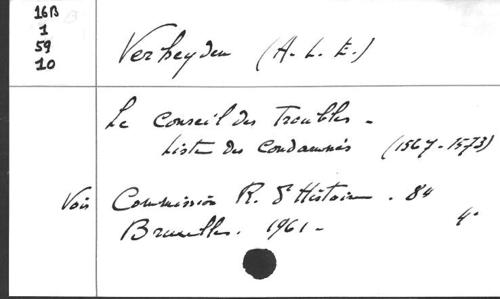 16B
1
59
10
Verheyden (A. L. E.)
Le Conseil des Troubles -
Liste des Condamnés (1567-1573)
Voir Commission R. d'Histoire. 84
Bruxelles. 1961 - 4°